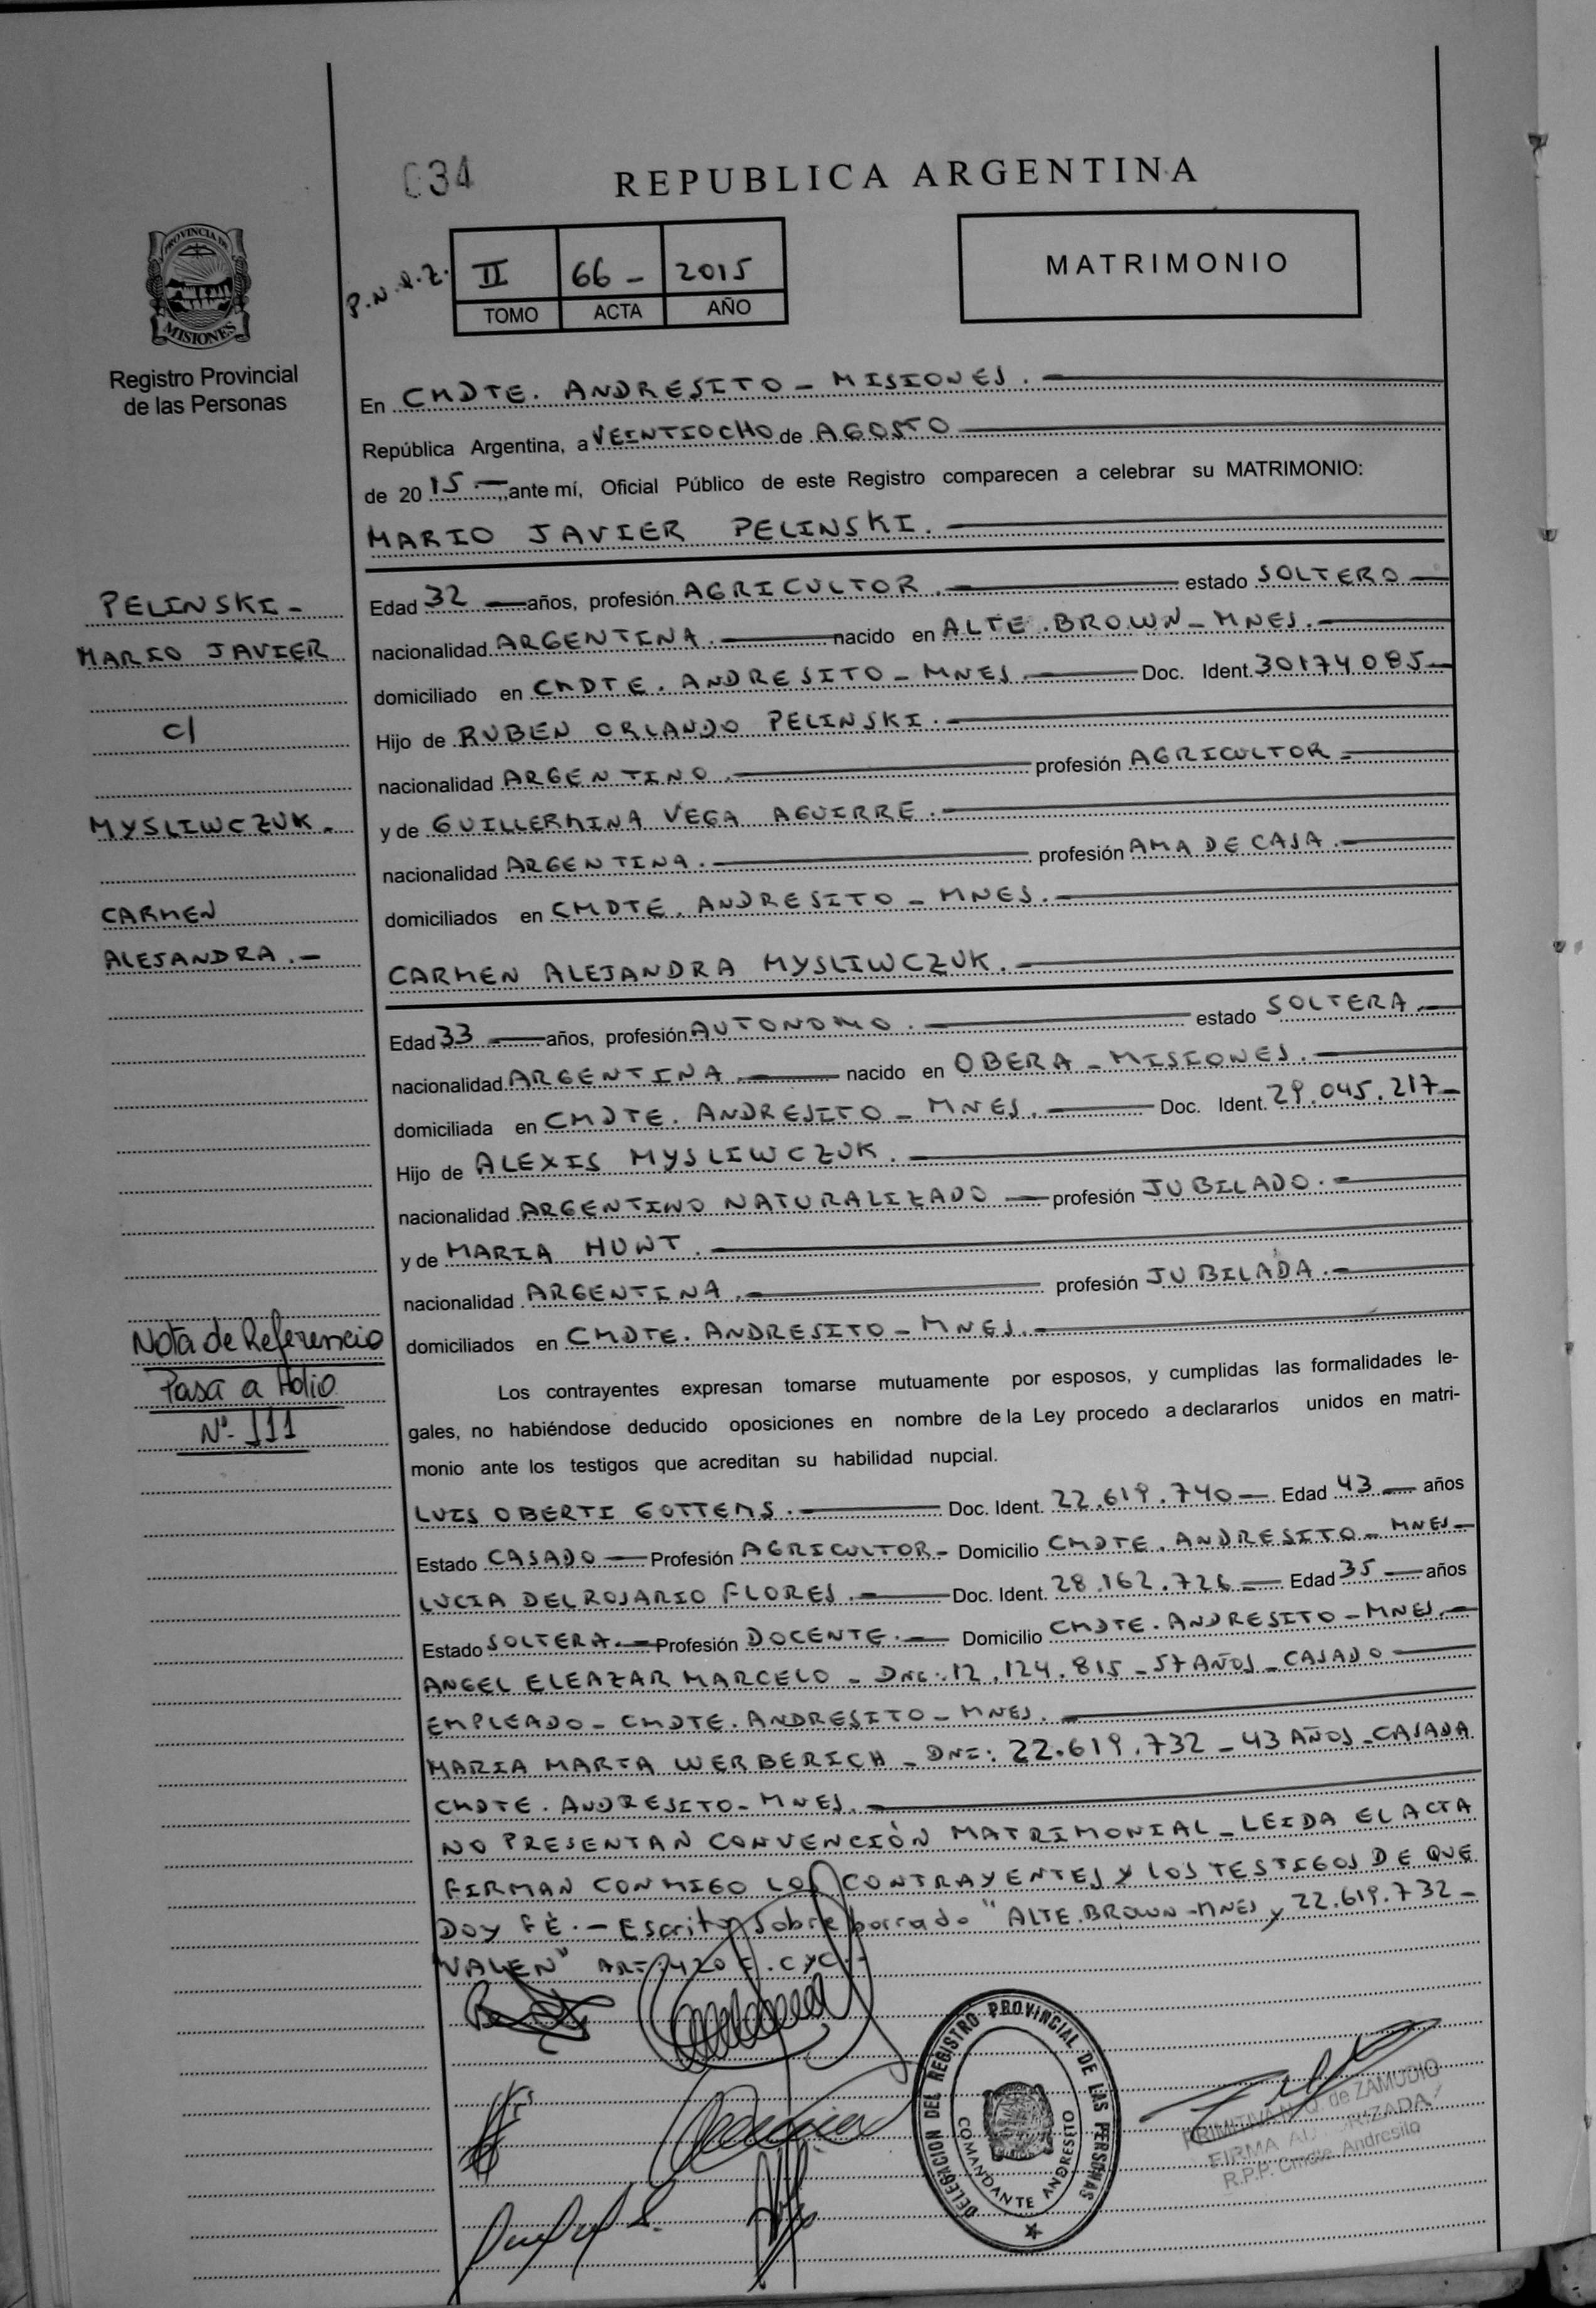 034
REPUBLICA ARGENTINA
PROVINCIA DE
MISIONES
Registro Provincial
de las Personas
P.N.
II 66 - 2015
TOMO ACTA AÑO
MATRIMONIO
En CMDTE. ANDRESITO - MISIONES.
República Argentina, a VEINTIOCHO de AGOSTO
de 20 15.- ,ante mí, Oficial Público de este Registro comparecen a celebrar su MATRIMONIO:
MARIO JAVIER PELINSKI.
PELINSKI -
MARIO JAVIER
c/
MYSLIWCZUK -
CARMEN
ALEJANDRA.-
Edad 32 años, profesión AGRICULTOR.- estado SOLTERO
nacionalidad ARGENTINA. nacido en ALTE.BROWN - MNES.
domiciliado en CMDTE. ANDRESITO - MNES. Doc. Ident. 30174085
Hijo de RUBEN ORLANDO PELINSKI.
nacionalidad ARGENTINO. profesión AGRICULTOR
y de GUILLERMINA VEGA AGUIRRE.
nacionalidad ARGENTINA. profesión AMA DE CASA.
domiciliados en CMDTE. ANDRESITO - MNES.
CARMEN ALEJANDRA MYSLIWCZUK.
Edad 33 años, profesión AUTONOMO. estado SOLTERA.
nacionalidad ARGENTINA. nacido en OBERA - MISIONES.
domiciliada en CMDTE. ANDRESITO - MNES. Doc. Ident. 29.045.217
Hijo de ALEXIS MYSLIWCZUK.
nacionalidad ARGENTINO NATURALIZADO profesión JUBILADO.-
y de MARIA HUNT.
nacionalidad ARGENTINA. profesión JUBILADA.-
domiciliados en CMDTE. ANDRESITO - MNES.
Nota de Referencia
Pasa a Folio
Nº 111
Los contrayentes expresan tomarse mutuamente por esposos, y cumplidas las formalidades le-
gales, no habiéndose deducido oposiciones en nombre de la Ley procedo a declararlos unidos en matri-
monio ante los testigos que acreditan su habilidad nupcial.
LUIS OBERTI GOTTEMS. Doc. Ident. 22.619.740 Edad 43 años
Estado CASADO Profesión AGRICULTOR - Domicilio CMDTE. ANDRESITO - MNES
LUCIA DEL ROSARIO FLORES. Doc. Ident. 28.162.726 Edad 35 años
Estado SOLTERA. Profesión DOCENTE. Domicilio CMDTE. ANDRESITO - MNES.
ANGEL ELEAZAR MARCELO - DNI: 12.124.815 - 57 AÑOS - CASADO
EMPLEADO - CMDTE. ANDRESITO - MNES.
MARIA MARTA WERBERICH - DNI: 22.619.732 - 43 AÑOS - CASADA
CMDTE. ANDRESITO - MNES.
NO PRESENTAN CONVENCIÓN MATRIMONIAL - LEIDA EL ACTA
FIRMAN CONMIGO LOS CONTRAYENTES Y LOS TESTIGOS DE QUE
DOY FÉ.- Escrito sobre borrado "ALTE.BROWN - MNES y 22.619.732 -
"VALEN" ART. 420 C.CyC.-
DELEGACION DEL REGISTRO PROVINCIAL DE LAS PERSONAS
COMANDANTE ANDRESITO
PRIMITIVA N. Q. de ZAMUDIO
FIRMA AUTORIZADA
R.P.P. Cmdte. Andresito